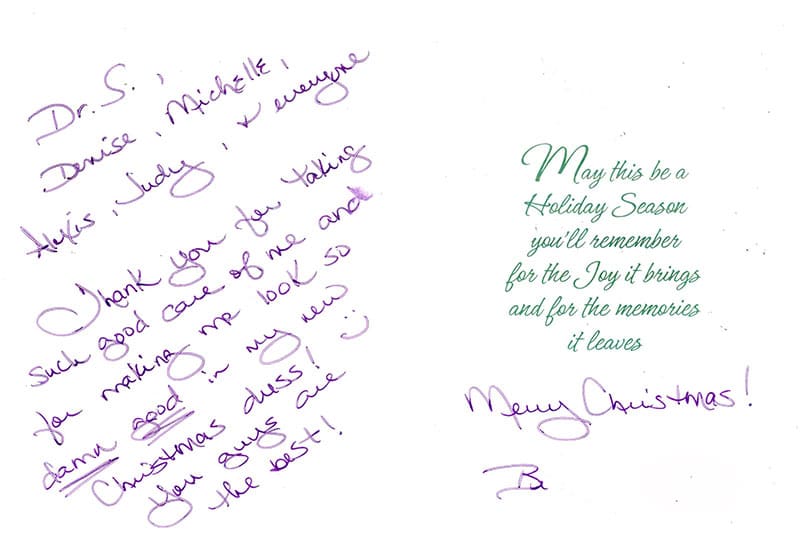 Dr. S.,
Denise, Michelle,
Alexis, Judy, & everyone
Thank you for taking
such good care of me and
for making me look so
damn good in my new
Christmas dress! :)
You guys are
the best!
May this be a
Holiday Season
you'll remember
for the Joy it brings
and for the memories
it leaves
Merry Christmas!